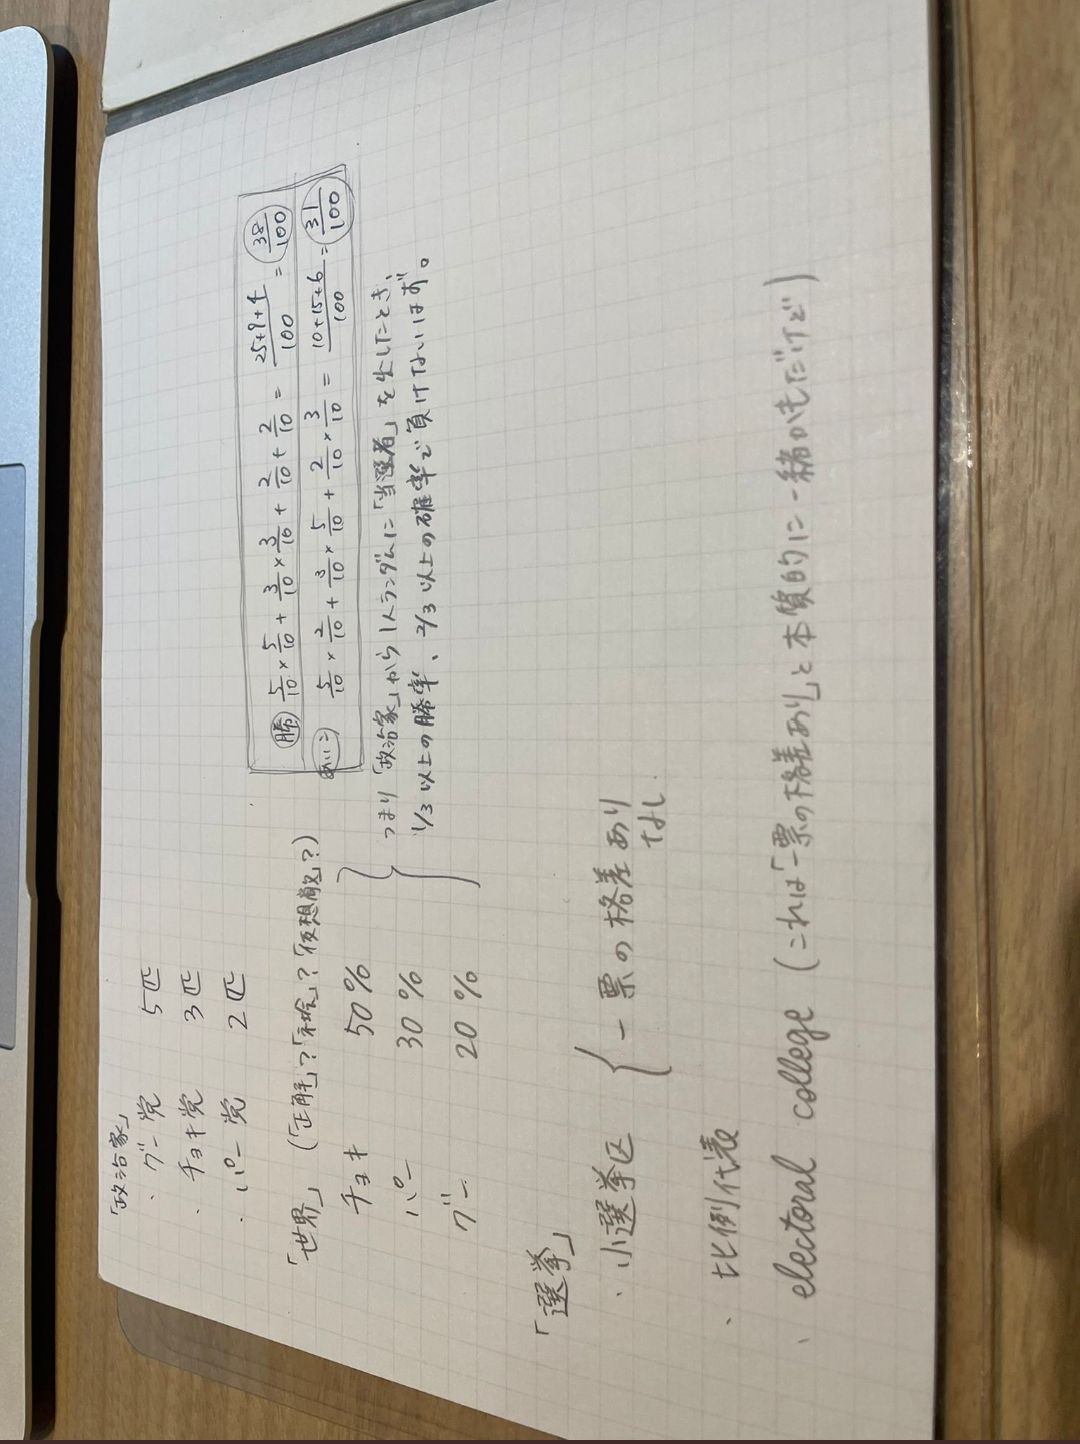 「政治家」
・グー党 5匹
・チョキ党 3匹
・パー党 2匹
「世界」 (「正解」?「社会」?「仮想敵」?)
チョキ 50%
パー 30%
グー 20%
勝 5/10 × 5/10 + 3/10 × 3/10 + 2/10 + 2/10 = 25+9+4/100 = 38/100
あいこ 5/10 × 2/10 + 3/10 × 5/10 + 2/10 × 3/10 = 10+15+6/100 = 31/100
つまり「政治家」から1人ランダムに「当選者」を出したとき、
1/3以上の勝率、2/3以上の確率で負けないはず。
「選挙」
・小選挙区 { 一票の格差 あり
なし
・比例代表
・electoral college (これは「一票の格差あり」と本質的に一緒かもだけど)